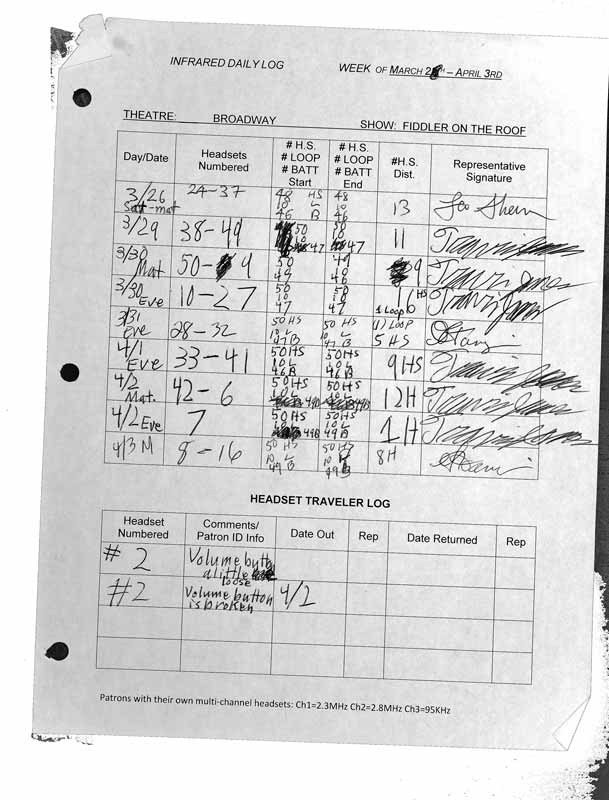 INFRARED DAILY LOG WEEK OF MARCH 2 H – APRIL 3RD
THEATRE: BROADWAY SHOW: FIDDLER ON THE ROOF
Day/Date Headsets Numbered # H.S. # LOOP # BATT Start # H.S. # LOOP # BATT End #H.S. Dist. Representative Signature
3/26 Sat-mat 24-37 48 HS 10 L 46 B 48 10 46 13
3/29 38-49 50 10 47 50 10 47 11 Travis
3/30 Mat 50-9 50 10 47 49 10 46 9 Travis
3/30 Eve 10-27 50 10 47 50 10 47 16 HS 1 Loop Travis
3/31 Eve 28-32 50 HS 10 L 47 B 50 HS 10 L 47 B (1) LOOP 5 HS
4/1 Eve 33-41 50HS 10L 46B 50HS 10L 46B 9HS Travis
4/2 Mat. 42-6 50HS 10L 49B 50HS 10L 49B 12H Travis
4/2 Eve 7 50HS 10L 49B 50HS 10L 49B 1H Travis
4/3 M 8-16 50 HS 10 L 49 B 50 HS 10 L 49 B 8H
HEADSET TRAVELER LOG
Headset Numbered Comments/ Patron ID Info Date Out Rep Date Returned Rep
# 2 Volume butto a little loose
#2 Volume button is broken 4/2
Patrons with their own multi-channel headsets: Ch1=2.3MHz Ch2=2.8MHz Ch3=95KHz